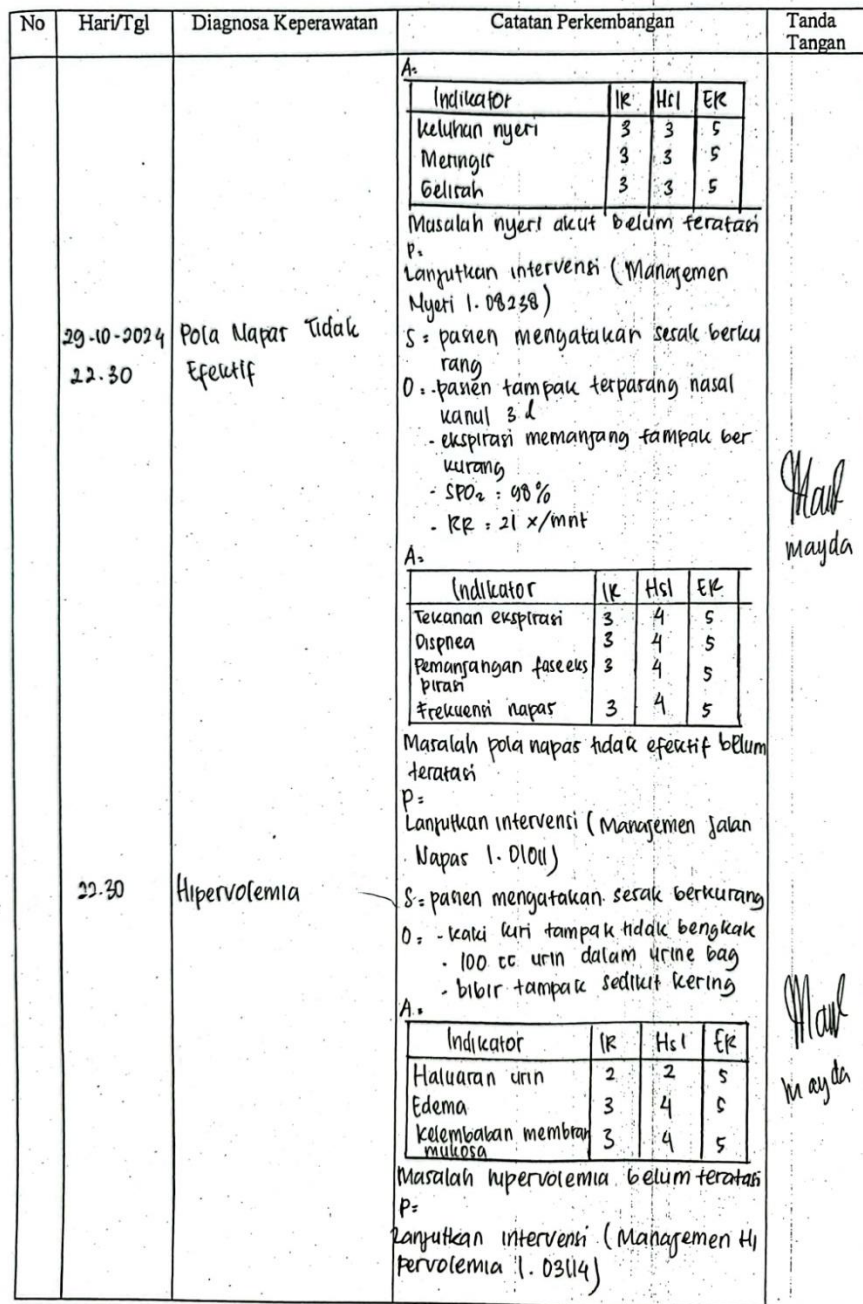 No Hari/Tgl Diagnosa Keperawatan Catatan Perkembangan Tanda Tangan
A:
Indikator IR Hsl ER
Keluhan nyeri 3 3 5
Meringis 3 3 5
Gelisah 3 3 5
Masalah nyeri akut belum teratasi
P:
Lanjutkan intervensi (Manajemen
Nyeri I. 08238)
29-10-2024 Pola Napas Tidak S = pasien mengatakan sesak berku
22.30 Efektif rang
O: - pasien tampak terpasang nasal
kanul 3 l
- ekspirasi memanjang tampak ber
kurang
- SPO2 : 98%
- RR : 21 x/mnt
mayda
A:
Indikator IR Hsl ER
Tekanan ekspirasi 3 4 5
Dispnea 3 4 5
Pemanjangan fase eks 3 4 5
pirasi
Frekuensi napas 3 4 5
Masalah pola napas tidak efektif belum
teratasi
P =
Lanjutkan intervensi (Manajemen Jalan
Napas I. 01011)
22.30 Hipervolemia S = pasien mengatakan sesak berkurang
O: - kaki kiri tampak tidak bengkak
- 100 cc urin dalam urine bag
- bibir tampak sedikit kering
A:
Indikator IR Hsl ER
Haluaran urin 2 2 5
Edema 3 4 5
Kelembaban membran 3 4 5
mukosa
mayda
Masalah hipervolemia belum teratasi
P=
Lanjutkan intervensi (Manajemen Hi
pervolemia I. 03114)